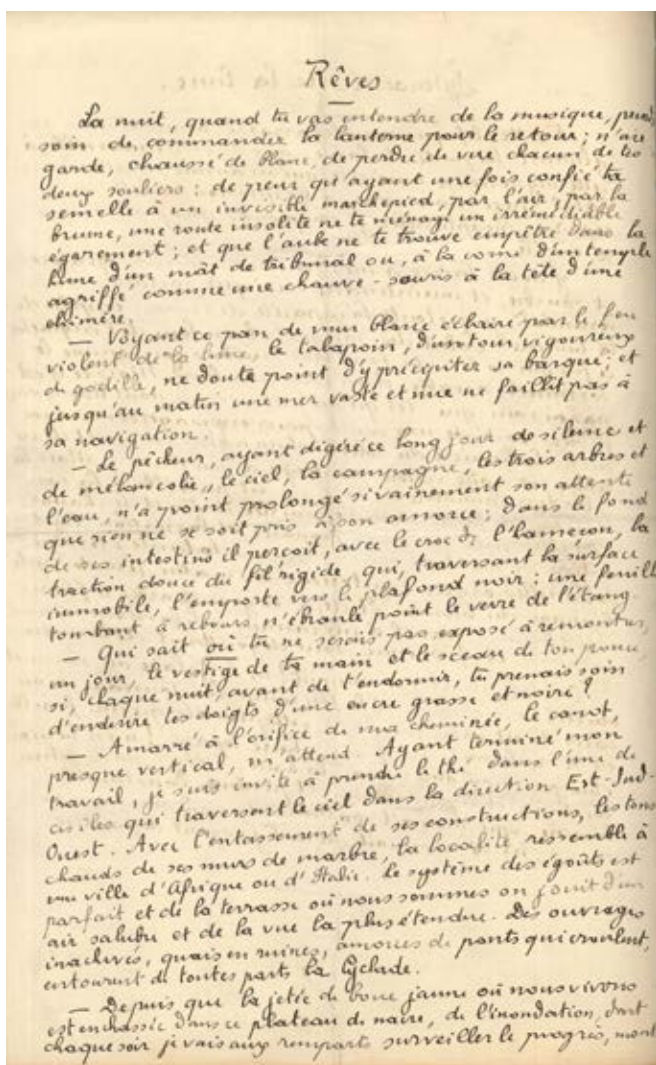 Rêves
La nuit, quand tu vas entendre de la musique, prends
soin de commander la lanterne pour le retour ; n'aie
garde, chaussé de blanc, de perdre de vue chacun de tes
deux souliers : de peur qu'ayant une fois confié ta
semelle à un invisible marchepied, par l'air, par la
brume, une route insolite ne te ménage un irrémédiable
égarement ; et que l'aube ne te trouve empêtré dans la
hune d'un mât de tribunal ou, à la corne d'un temple
agriffé comme une chauve-souris à la tête d'une
chimère.
— Voyant ce pan de mur blanc éclairé par le feu
violent de la lune, le talapoin, d'un tour vigoureux
de godille, ne doute point d'y précipiter sa barque ; et
jusqu'au matin une mer vaste et nue ne faillit pas à
sa navigation.
— Le pêcheur, ayant digéré ce long jour de silence et
de mélancolie, le ciel, la campagne, les trois arbres et
l'eau, n'a point prolongé si vainement son attente
que rien ne se soit pris à son amorce ; dans le fond
de ses intestins il perçoit, avec le croc de l'hameçon, la
traction douce du fil rigide qui, traversant la surface
immobile, l'emporte vers le plafond noir : une feuille
tombant à rebours n'ébranle point le verre de l'étang.
— Qui sait où tu ne serais pas exposé à remontrer,
un jour, le vestige de ta main et le sceau de ton pouce,
si, chaque nuit, avant de t'endormir, tu prenais soin
d'enduire tes doigts d'une encre grasse et noire ?
— Amarré à l'orifice de ma cheminée, le canot,
presque vertical, m'attend. Ayant terminé mon
travail, je suis invité à prendre le thé dans l'une de
ces îles qui traversent le ciel dans la direction Est-Sud-
Ouest. Avec l'entassement de ses constructions, les tons
chauds de ses murs de marbre, la localité ressemble à
une ville d'Afrique ou d'Italie. Le système des égoûts est
parfait et de la terrasse où nous sommes on jouit d'un
air salubre et de la vue la plus étendue. Des ouvrages
inachevés, quais en ruines, amorces de ponts qui croulent,
entourent de toutes parts la Cyclade.
— Depuis que la jetée de boue jaune où nous vivons
est enchâssée dans ce plateau de nacre, de l'inondation, dont
chaque soir je vais aux remparts surveiller le progrès, mont